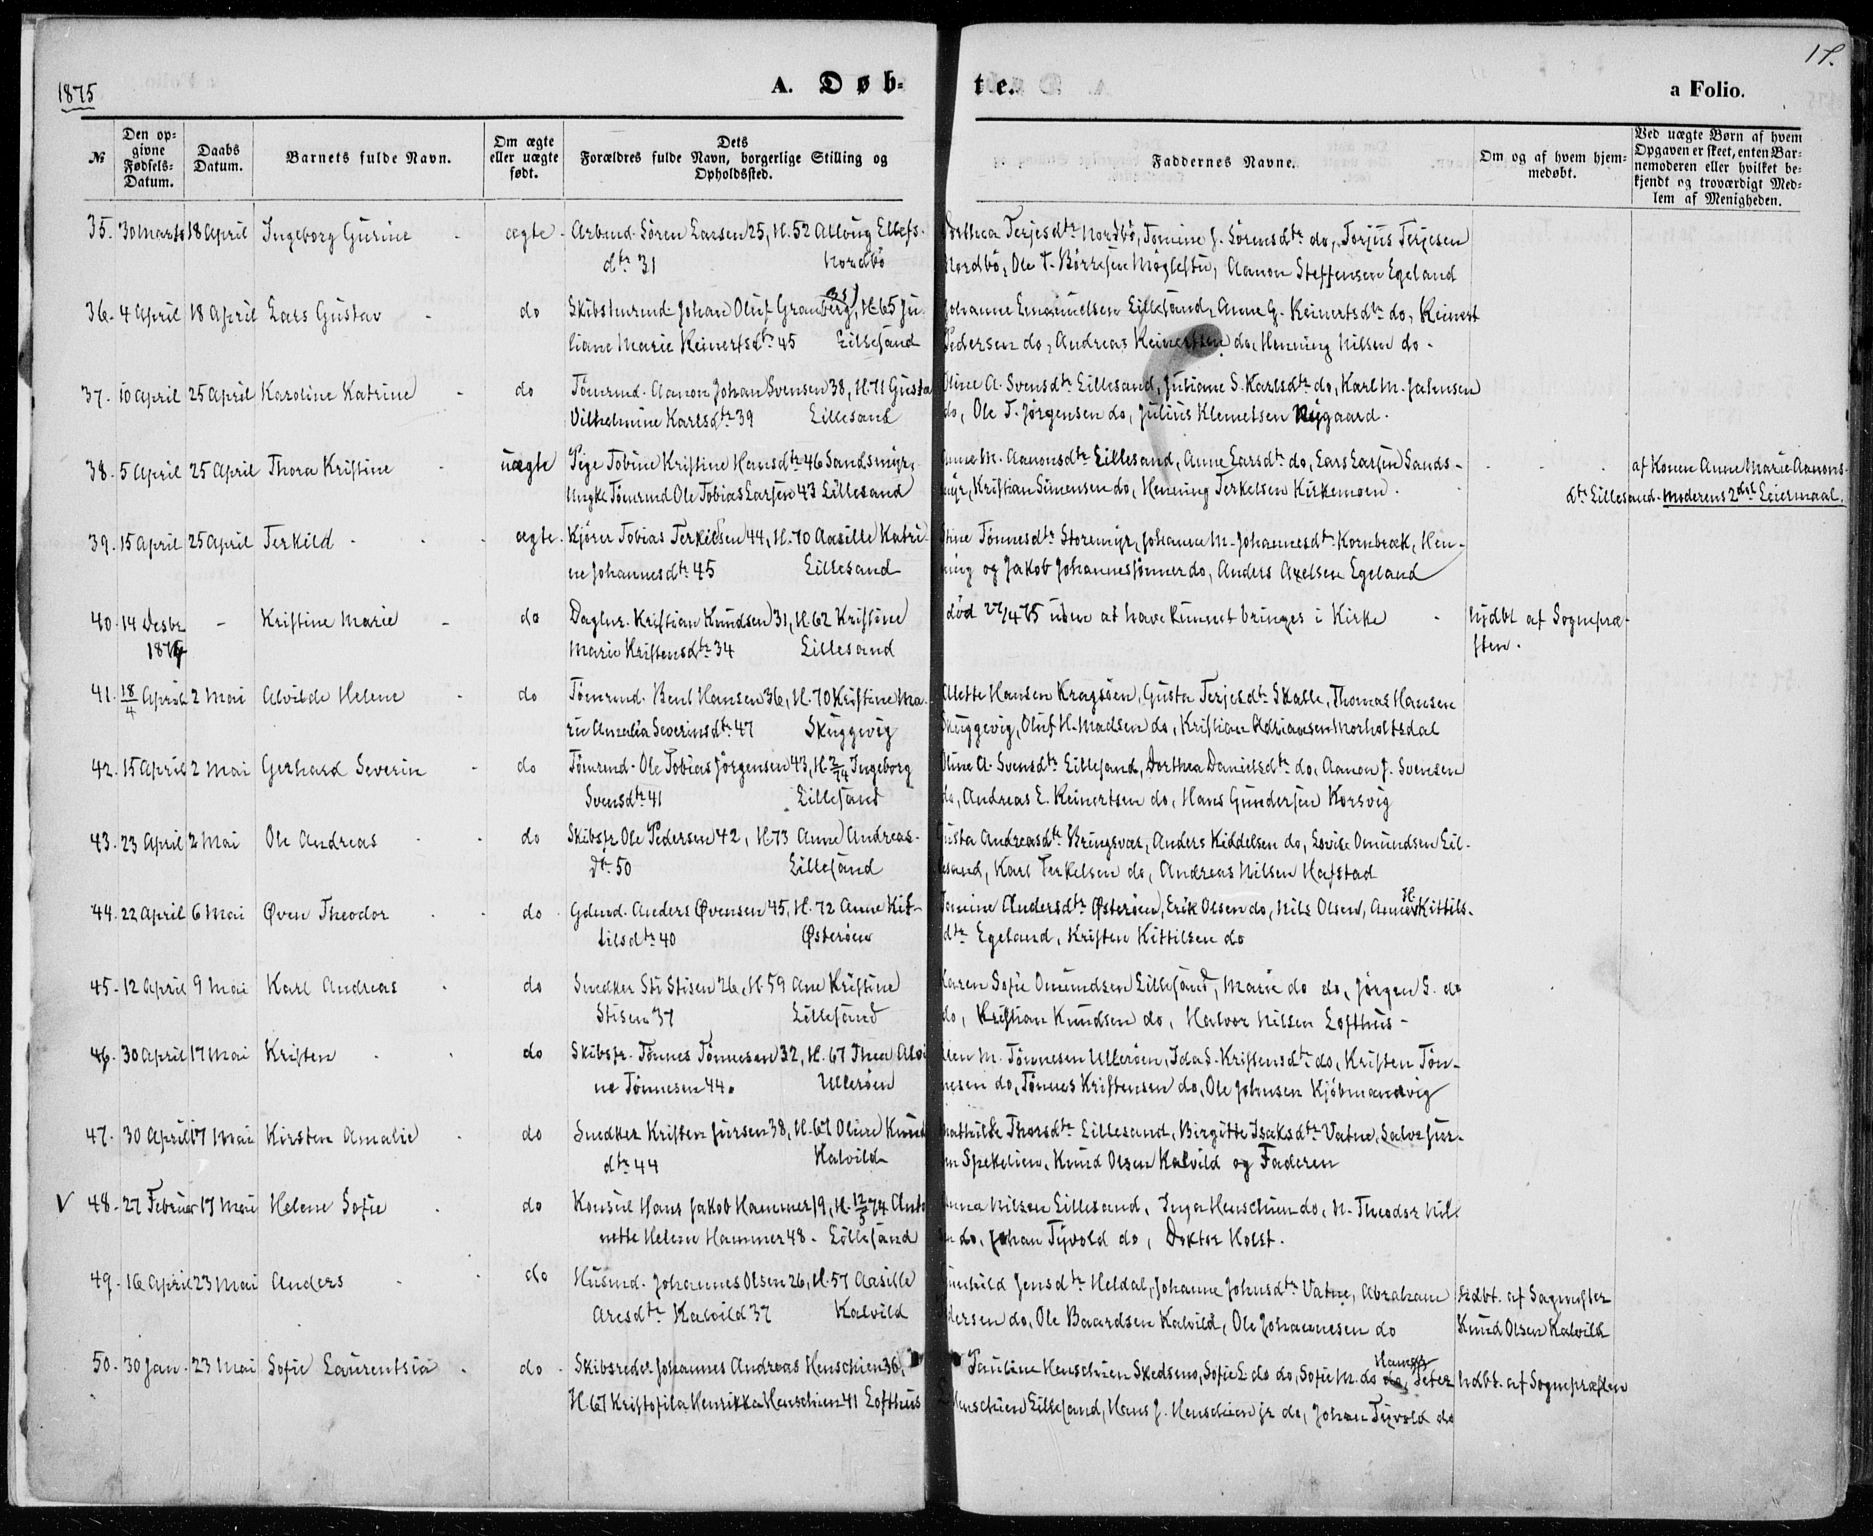 17.
1875
A. Døb-
te.
a Folio.
№
Den op-
givne
Fødsels-
Datum.
Daabs
Datum.
Barnets fulde Navn.
Om ægte
eller uægte
født.
Dets
Forældres fulde Navn, borgerlige Stilling og
Opholdssted.
Faddernes Navne.
Om og af hvem hjem-
medøbt.
Ved uægte Børn af hvem
Opgaven er skeet, enten Bar-
nemoderen eller hvilket be-
kjendt og troværdigt Med-
lem af Menigheden.
35. 30 Marts 18 April Ingeborg Gurine - ægte. Arbmd. Sören Larsen 25, H. 52 Allvig Ellefs- Terjesdtr Nordbö, Tomine J. Sörensdtr do, Torjus Terjesen
dtr 31 Nordbö Nordbö, Ole T. Börresen Möglestu, Aanon Steffensen Egeland
36. 4 April 18 April Lars Gustav - do Skibstmrmd Johan Oluf Granberg 35, H. 65 Ju- Johanne Emanuelsen Lillesand, Anne G. Reinertsdtr do, Reinert
liane Marie Reinertsdtr 45 Lillesand Pedersen do, Andreas Reinertsen do, Henning Nilsen do.
37. 10 April 25 April Karoline Katrine - do Tömrmd. Aanon Johan Svensen 38, H. 71 Gusta Oline A. Svensdtr Lillesand, Juliane S. Karlsdtr do, Karl M. Jahnsen
Vilhelmine Karlsdtr 39 Lillesand do, Ole T. Jörgensen do, Julius Klemetsen Nygaard.
38. 5 April 25 April Thora Kristine - uægte Pige Tobine Kristine Hansdtr 46 Sandsmyr, Anne M. Aanonsdtr Lillesand, Anne Larsdtr do, Lars Larsen Sands- - - - af Konen Anne Marie Aanons-
Ungke Tömrmd Ole Tobias Larsen 43 Lillesand myr, Kristian Simensen do, Henning Terkelsen Kirkemoen. dtr Lillesand. Moderens 2det Leiermaal.
39. 15 April 25 April Terkild - - - ægte. Kjörer Tobias Terkildsen 44, H. 70 Aasille Katri- Stine Tönnesdtr Storemyr, Johanne M. Johannesdtr Kornbræk, Hen-
ne Johannesdtr 45 Lillesand ning og Jakob Johannessönner do, Anders Axelsen Egeland
40. 14 Desbr - Kristine Marie - do Daglnr. Kristian Knudsen 31, H. 62 Kristine död 27/4 75 uden at have kunnet bringes i Kirke - hjdbt af Sognepræ-
1874 Marie Kristensdtr 34 Lillesand sten.
41. 18/4 April 2 Mai Alvilde Helene - do Tömrmd. Bent Hansen 36, H. 70 Kristine Ma- Alette Hansen Kragsöen, Gusta Terjesdtr Skalle, Thomas Hansen
rie Amalia Severinsdtr 47 Skuggevig Skuggevig, Oluf H. Madsen do, Kristian Adriansen Morholtsdal
42. 15 April 2 Mai Gerhard Severin - do Tömrmd. Ole Tobias Jörgensen 43, H. 2/74 Ingeborg Oline A. Svensdtr Lillesand, Dorthea Danielsdtr do, Aanon J. Svensen
Svensdtr 41 Lillesand do, Andreas E. Reinertsen do, Hans Gundersen Korsvig
43. 23 April 2 Mai Ole Andreas - - do Skibsfr Ole Pedersen 42, H. 73 Anne Andreas- Gusta Andreasdtr Bringsvær, Anders Kiddelsen do, Lovise Omundsen Lil-
dtr 50 Lillesand lesand, Karl Terkelsen do, Andreas Nilsen Hafstad
44. 22 April 6 Mai Øven Theodor - - do. Gdmd. Anders Øvensen 45, H. 72 Anne Kit- Tomine Andersdtr Østeröen, Erik Olsen do, Nils Olsen, Anne H. Kittils-
tilsdtr 40 Østeröen dtr Egeland, Kristen Kittilsen do
45. 12 April 9 Mai Karl Andreas - do Snedker Sti Stisen 26, H. 59 Ane Kristine Karen Sofie Omundsen Lillesand, Marie do do, Jörgen S. do
Stisen 37 Lillesand do, Kristian Knudsen do, Halvor Nilsen Lofthus -
46. 30 April 17 Mai Kristen - - do Skibsfr. Tönnes Tönnesen 32, H. 67 Thea Alvi- M. Tönnesen Ulleröen, Ida S. Kristensdtr do, Kristen Tön-
ne Tönnesen 44. Ulleröen nesen do, Tönnes Kristensen do, Ole Johnsen Kjöbmandvig
47. 30 April 17 Mai Kirsten Amalie - do Snedker Kristen Jursen 38, H. 67 Oline Knuds- Mathilde Thorsdtr Lillesand, Birgitte Isaksdtr Vatne, Salve Jur-
dtr 44 Kalvild en Spekelien, Knud Olsen Kalvild og Faderen
V 48. 27 Februar 17 Mai Helene Sofie - do Konsul Hans Jakob Hammer 19, H. 12/5 74 Anto- Anna Nilsen Lillesand, Inga Henschien do, N. Theodor Nil-
nette Helene Hammer 48. Lillesand sen do, Johan Tyvold do, Doktor Holst.
49. 16 April 23 Mai Anders - - do Husmd. Johannes Olsen 26, H. 57 Aasille Gunhild Jensdtr Heldal, Johanne Johnsdtr Vatne, Abraham hdbt. af Sagmester
Aresdtr Kalvild 37 Kalvild Pedersen do, Ole Baardsen Kalvild, Ole Johannesen do Knud Olsen Kalvild
50. 30 Jan. 23 Mai Sofie Laurentsia - do. Skibsreder Johannes Andreas Henschien 36, Pauline Henschien Skedsmo, Sofie L. do do, Sofie M. do do, Peter hdbt. af Sognepræsten
H. 67 Kristofila Henrikka Henschien 41 Lofthus Henschien Lillesand, Hans J. Henschien jr do, Johan Tyvold do